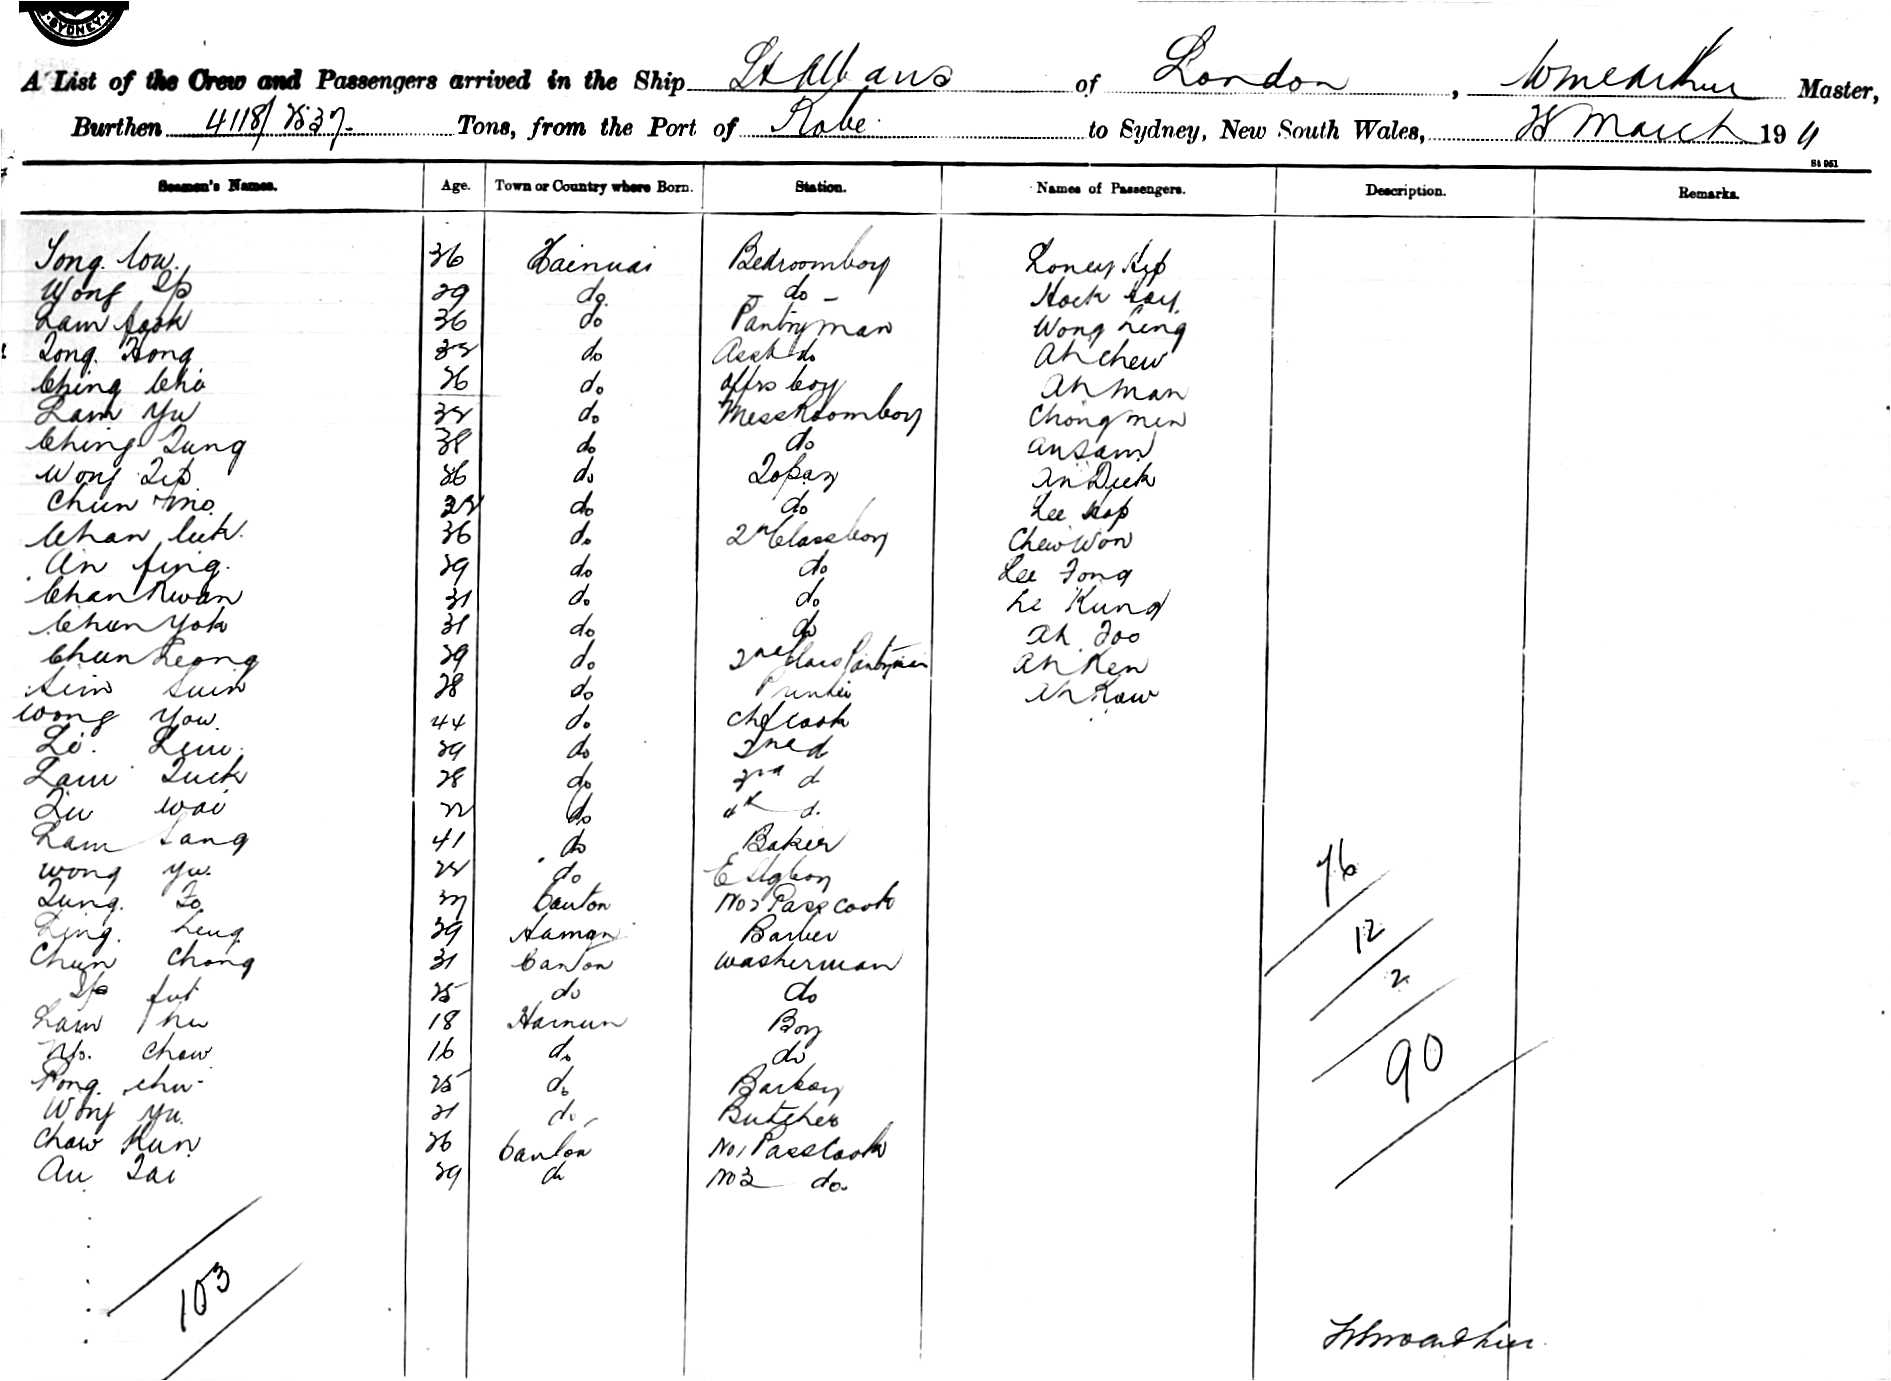 SYDNEY
A List of the Crew and Passengers arrived in the Ship St Albans of London, W McArthur Master,
Burthen 4118/2537 Tons, from the Port of Kobe to Sydney, New South Wales, 28 March 1911
Seamen's Names. Age. Town or Country where Born. Station. Names of Passengers. Description. Remarks.
Tong Low 36 Bedroomboy Loney Kip
Wong Ip 29 do - do - Hock Kay
Lam Sook 36 do Pantryman Wong Ling
Tong Hong 32 do Asst do Ah Chew
Ching Cho 26 do Offrs boy Ah Man
Lam Yu 32 do Messroomboy Chong Men
Ching Tung 38 do do Ah Sam
Wong Tip 26 do Topaz Ah Dick
Chun 32 do do Lee Hop
Chan Luk 36 do 2nd Class boy Chew Won
An Sing 29 do do Lee Fong
Chan Kwan 31 do do Le Kung
Chun Yok 31 do do Ah Foo
Chun Leong 29 do 2nd Class Pantryman Ah Ken
Sim Suen 28 do Ah Kow
Wong You 44 do Chf Cook
Li Lim 29 do 2nd d
Lam Tuck 28 do 3rd d
Lu Wai 22 do 4th d.
Lam Sang 41 do Baker
Wong Yu 22 do
Tung Fo 32 Canton No 2 Pass Cook
Ling Leug 29 Barber
Chun Chong 31 Canton Washerman
Ip Fut 25 do do
Lam 18 Boy
Chow 16 do do
Kong Chu 25 do Barboy
Wong Yu 21 do Butcher
Chow Kun 26 Canton No 1 Pass Cook
Au Tai 29 do No 3 do
76
12
2
90
103
W McArthur